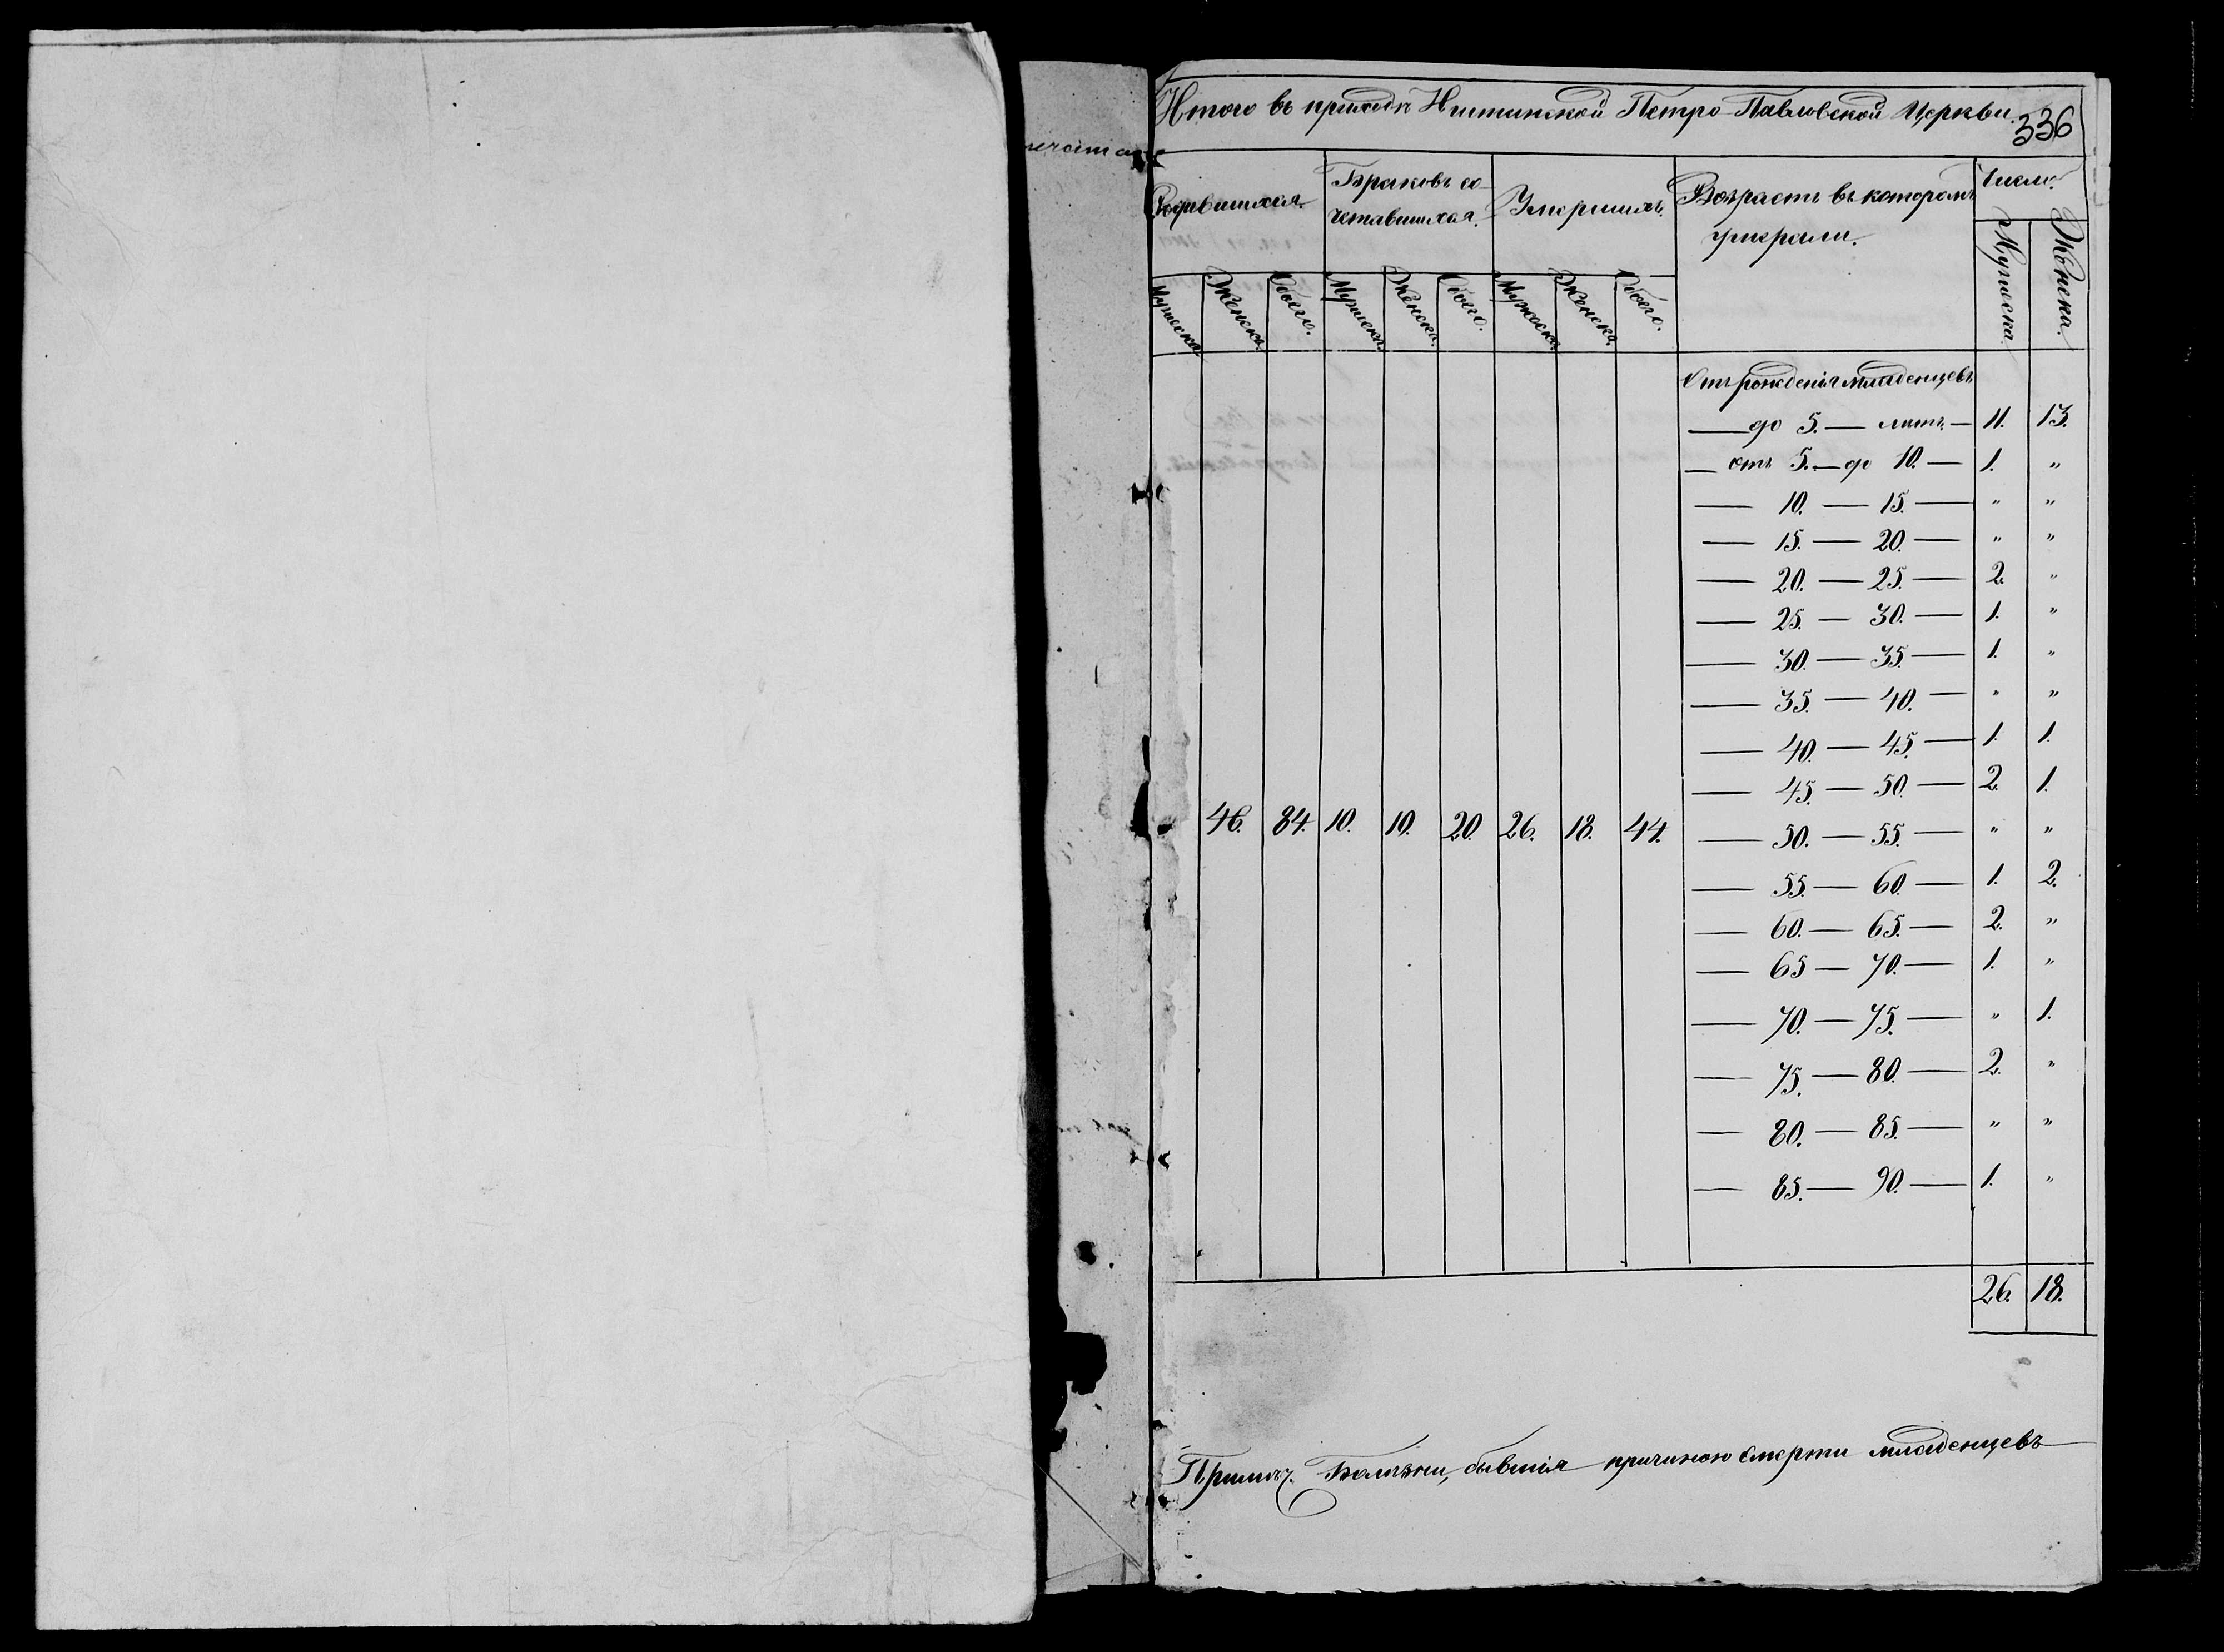 Итого въ приходѣ Ниттинской Петро-Павловской Церкви.
336
Родившихся. Браковъ со- Умершихъ. Возрастъ въ которомъ Число.
четавшихся. умерали.
Мужеска Женска. Обоего. Мужеска Женска. Обоего. Мужеска Женска. Обоего. Мужеска Женска.
Отъ рожденія младенцевъ
— до 5. — лѣтъ. — 11. 13.
— отъ 5. — до 10. — 1. "
— 10. — 15. — " "
— 15. — 20. — " "
— 20. — 25. — 2. "
— 25. — 30. — 1. "
— 30. — 35. — 1. "
— 35. — 40. — " "
— 40. — 45. — 1. 1.
— 45. — 50. — 2. 1.
46. 84. 10. 10. 20. 26. 18. 44. — 50. — 55. — " "
— 55. — 60. — 1. 2.
— 60. — 65. — 2. "
— 65 — 70. — 1. "
— 70. — 75. — " 1.
— 75. — 80. — 2. "
— 80. — 85. — " "
— 85. — 90. — 1. "
26. 18.
Примѣч. Болѣзни, бывшія причиною смерти младенцевъ